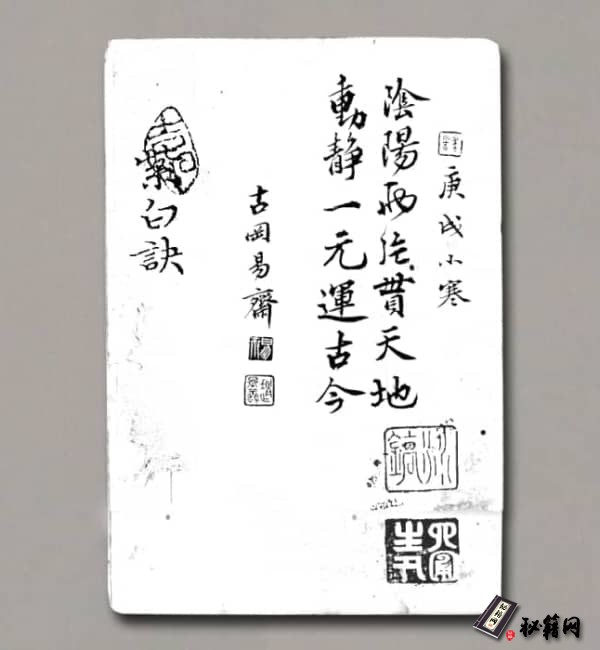 庚戌小寒
陰陽兩炁貫天地
動靜一元運古今
古岡易齋
紫白訣
秘籍网